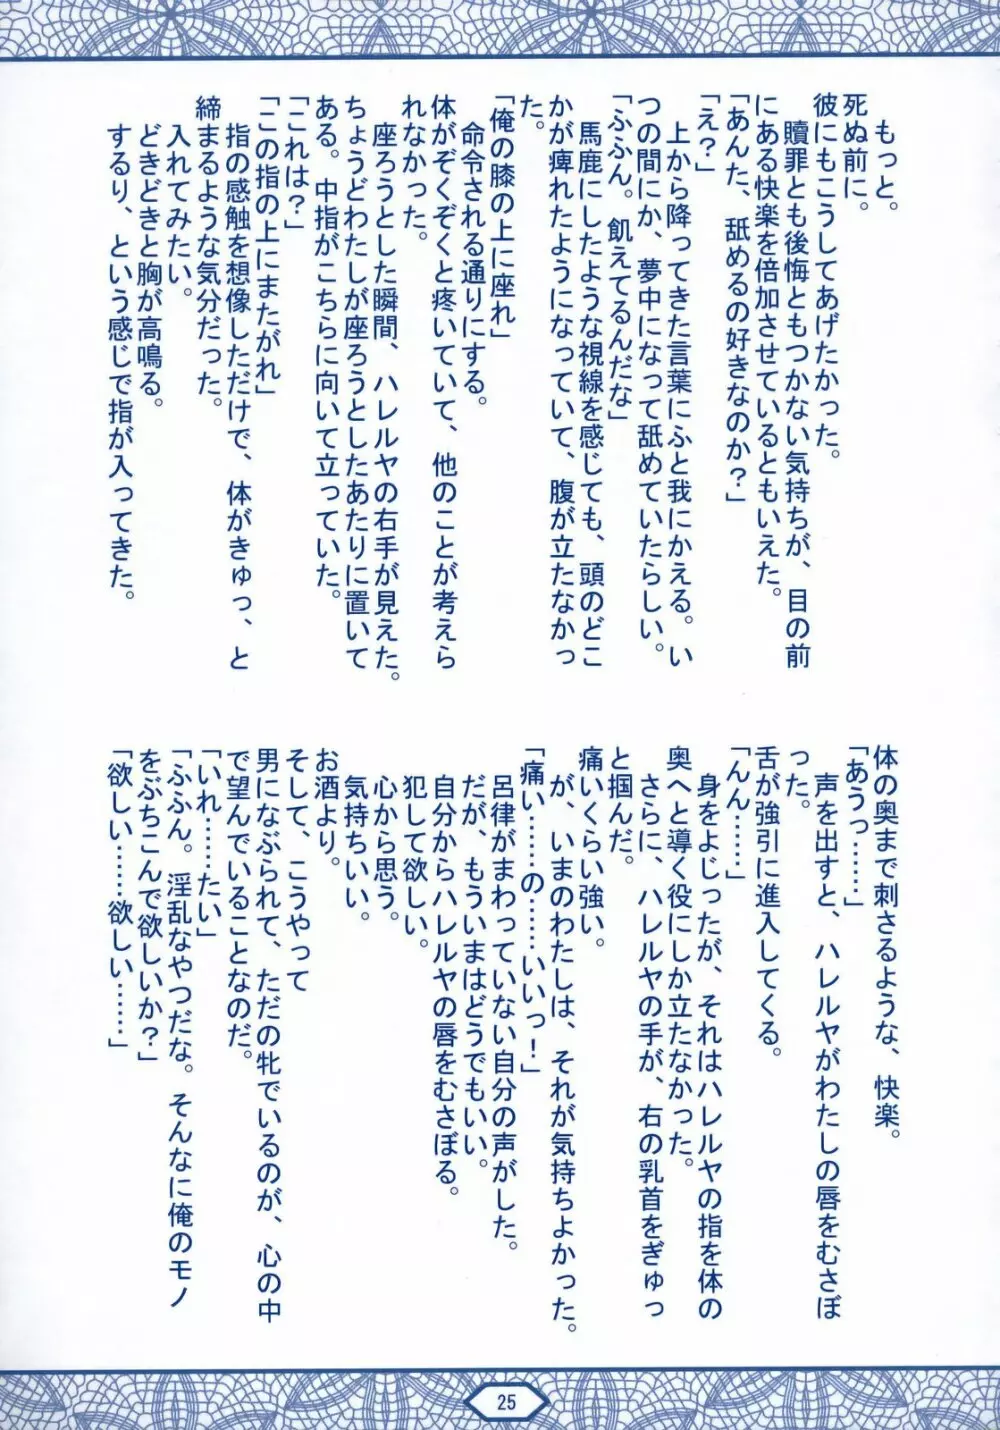 もっと。
死ぬ前に。
彼にもこうしてあげたかった。
贖罪とも後悔ともつかない気持ちが、目の前
にある快楽を倍加させているともいえた。
「あんた、舐めるの好きなのか？」
「え？」
上から降ってきた言葉にふと我にかえる。い
つの間にか、夢中になって舐めていたらしい。
「ふふん。飢えてるんだな」
馬鹿にしたような視線を感じても、頭のどこ
かが痺れたようになっていて、腹が立たなかっ
た。
「俺の膝の上に座れ」
命令される通りにする。
体がぞくぞくと疼いていて、他のことが考えら
れなかった。
座ろうとした瞬間、ハレルヤの右手が見えた。
ちょうどわたしが座ろうとしたあたりに置いて
ある。中指がこちらに向いて立っていた。
「これは？」
「この指の上にまたがれ」
指の感触を想像しただけで、体がきゅっ、と
締まるような気分だった。
入れてみたい。
どきどきと胸が高鳴る。
するり、という感じで指が入ってきた。
体の奥まで刺さるような、快楽。
「あうっ……」
声を出すと、ハレルヤがわたしの唇をむさぼ
った。
舌が強引に進入してくる。
「んん……」
身をよじったが、それはハレルヤの指を体の
奥へと導く役にしか立たなかった。
さらに、ハレルヤの手が、右の乳首をぎゅっ
と掴んだ。
痛いくらい強い。
が、いまのわたしは、それが気持ちよかった。
「痛い……の……いいっ！」
呂律がまわっていない自分の声がした。
だが、もういまはどうでもいい。
自分からハレルヤの唇をむさぼる。
犯して欲しい。
心から思う。
気持ちいい。
お酒より。
そして、こうやって
男になぶられて、ただの牝でいるのが、心の中
で望んでいることなのだ。
「いれ……たい」
「ふふん。淫乱なやつだな。そんなに俺のモノ
をぶちこんで欲しいか？」
「欲しい……欲しい……」
25